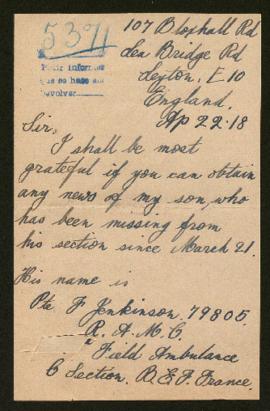 5371
107 Bloxhall Rd
Lea Bridge Rd
Leyton, E.10
England.
Ap 22.18
Pedir informes
que se hace al
devolver
Sir,
I shall be most
grateful if you can obtain
any news of my son, who
has been missing from
his section since March 21.
His name is
Pte F Jenkinson. 79805.
R.A.M.C.
Field Ambulance
C Section, B.E.F. France.